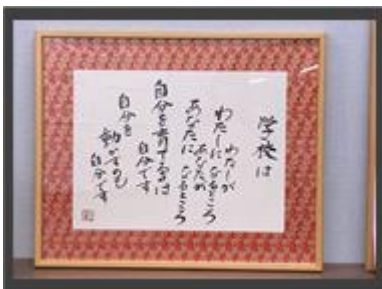 学校は
わたしが
わたしになるところ
あなたが
あなたになるところ
自分を育てるのは
自分です
自分を
動かすのも
自分です